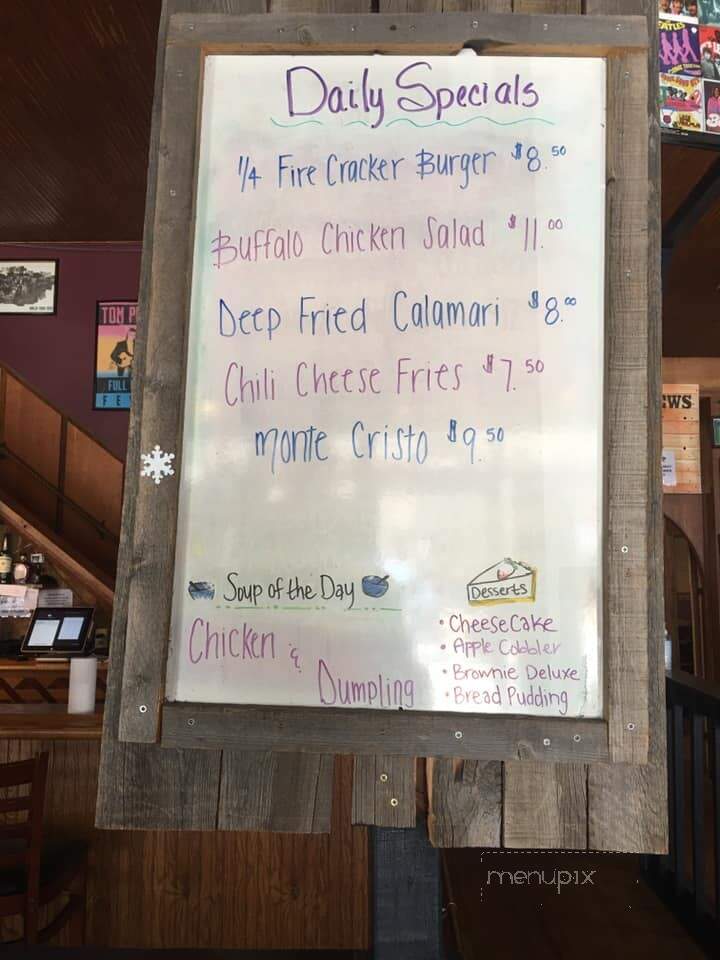 Daily Specials
1/4 Fire Cracker Burger $8.50
Buffalo Chicken Salad $11.00
Deep Fried Calamari $8.00
Chili Cheese Fries $7.50
Monte Cristo $9.50
Soup of the Day
Chicken & Dumpling
Desserts
• CheeseCake
• Apple Cobbler
• Brownie Deluxe
• Bread Pudding
TOM P
FULL
FE
EWS
menupix